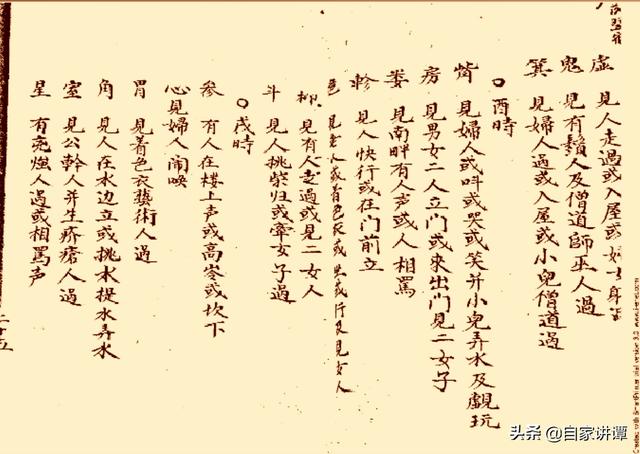 虚 見人走過或入屋或
鬼 見有鬚人及僧道師巫人過
箕 見婦人過或入屋或小兒僧道過
○酉時
觜 見婦人或呌或哭或笑并小兒弄水及戯玩
房 見男女二人立門或來出門見二女子
娄 見南畔有人声或人相罵
軫 見人快行或在门前立
見老人或着色衣或 或行及見女人
柳 見有人走過或見二女人
斗 見人挑柴归或牵女子過
○戌時
参 有人在楼上声或高岺或坎下
心 見婦人闹唤
胃 見着色衣藝術人過
角 見人在水边立或挑水提水弄水
室 見公幹人并生疥瘡人過
星 有亮燭人過或相罵声
二十五
头条 @自家讲谭